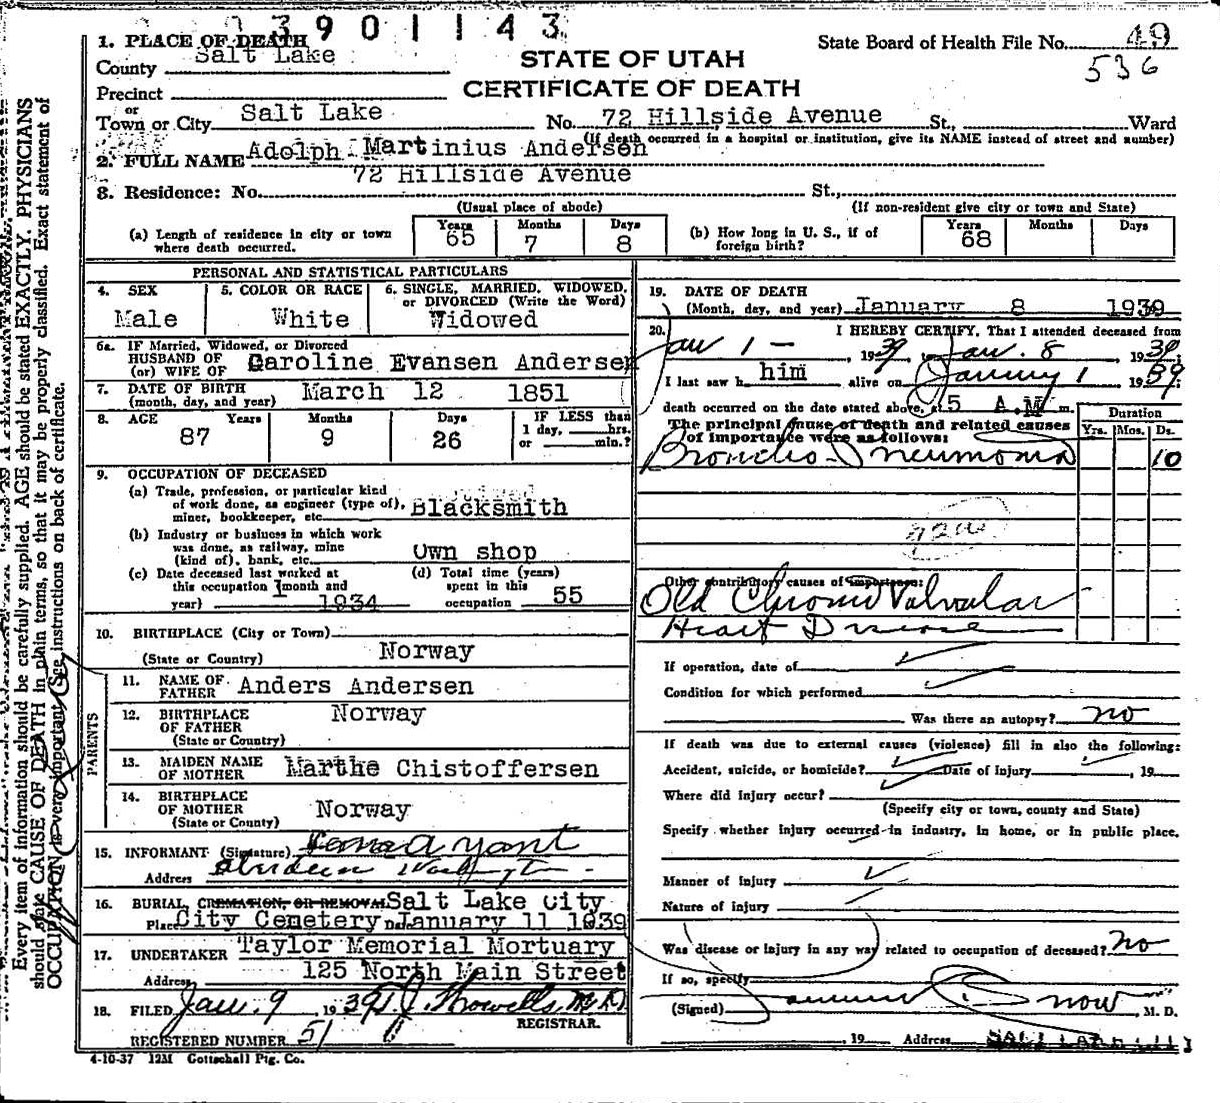 3901143
1. PLACE OF DEATH
County Salt Lake
STATE OF UTAH
State Board of Health File No. 49
536
Precinct
CERTIFICATE OF DEATH
or
Town or City Salt Lake No. 72 Hillside Avenue St., Ward
(If death occurred in a hospital or institution, give its NAME instead of street and number)
2. FULL NAME Adolph Martinius Andersen
72 Hillside Avenue
3. Residence: No. St.,
(Usual place of abode) (If non-resident give city or town and State)
(a) Length of residence in city or town where death occurred. Years 65 Months 7 Days 8
(b) How long in U. S., if of foreign birth? Years 68 Months Days
PERSONAL AND STATISTICAL PARTICULARS
4. SEX Male
5. COLOR OR RACE White
6. SINGLE, MARRIED, WIDOWED, or DIVORCED (Write the Word) Widowed
6a. IF Married, Widowed, or Divorced
HUSBAND OF
(or) WIFE OF Caroline Evansen Andersen
7. DATE OF BIRTH
(month, day, and year) March 12 1851
8. AGE Years 87 Months 9 Days 26 IF LESS than
1 day, hrs.
or min.?
9. OCCUPATION OF DECEASED
(a) Trade, profession, or particular kind
of work done, as engineer (type of),
miner, bookkeeper, etc. Blacksmith
(b) Industry or business in which work
was done, as railway, mine
(kind of), bank, etc. Own shop
(c) Date deceased last worked at
this occupation (month and
year) 1934
(d) Total time (years)
spent in this
occupation 55
10. BIRTHPLACE (City or Town)
(State or Country) Norway
PARENTS
11. NAME OF
FATHER Anders Andersen
12. BIRTHPLACE
OF FATHER
(State or Country) Norway
13. MAIDEN NAME
OF MOTHER Marthe Chistoffersen
14. BIRTHPLACE
OF MOTHER
(State or Country) Norway
15. INFORMANT (Signature)
Address Aberdeen Washington
16. BURIAL, CREMATION, OR REMOVAL Salt Lake City
Place City Cemetery Date January 11 1939
17. UNDERTAKER Taylor Memorial Mortuary
Address 125 North Main Street
18. FILED Jan. 9, 1939 T. J. Howells M.D.
REGISTRAR.
REGISTERED NUMBER 51
4-10-37 12M Gottschall Ptg. Co.
19. DATE OF DEATH
(Month, day, and year) January 8 1939
20. I HEREBY CERTIFY, That I attended deceased from
Jan 1 - 1939, to Jan. 8 1939;
I last saw him alive on January 1 1939
death occurred on the date stated above, at 5 A.M m.
The principal cause of death and related causes
of importance were as follows:
Duration
Yrs. Mos. Ds.
Broncho-Pneumonia 10
Other contributory causes of importance:
Old Chronic Valvular
Heart Disease
If operation, date of
Condition for which performed
Was there an autopsy? no
If death was due to external causes (violence) fill in also the following:
Accident, suicide, or homicide? Date of Injury , 19
Where did injury occur?
(Specify city or town, county and State)
Specify whether injury occurred in industry, in home, or in public place.
Manner of injury
Nature of injury
Was disease or injury in any way related to occupation of deceased? no
If so, specify
(Signed) Snow , M. D.
, 19 Address
Every item of information should be carefully supplied. AGE should be stated EXACTLY. PHYSICIANS
should state CAUSE OF DEATH in plain terms, so that it may be properly classified. Exact statement of
OCCUPATION is very important. See instructions on back of certificate.